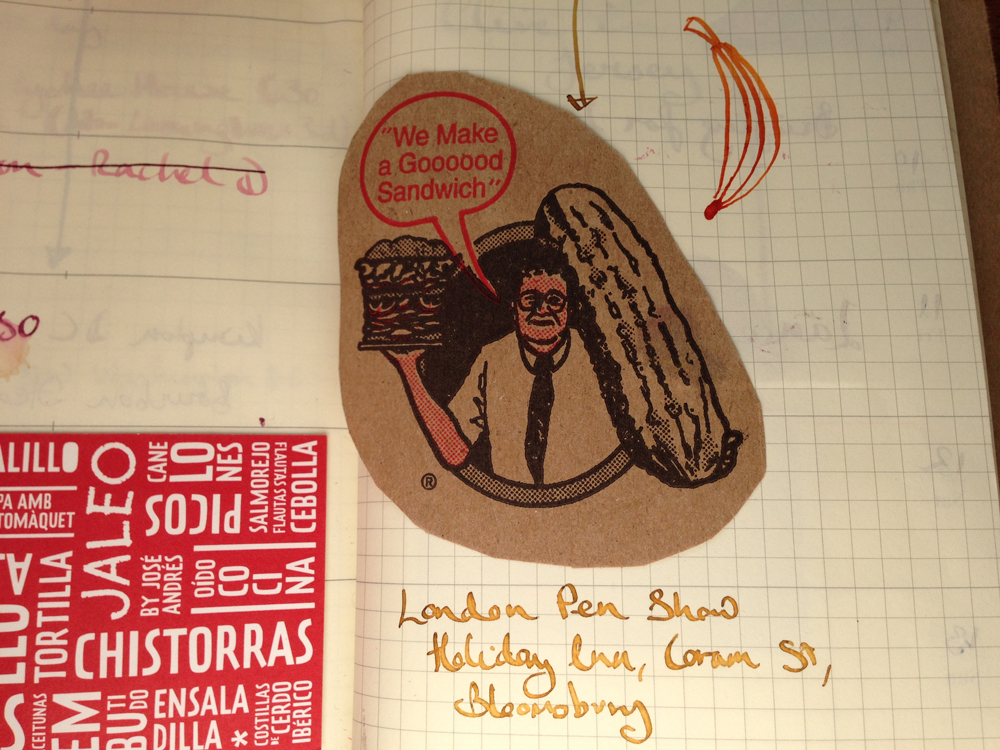 Rachel
"We Make
a Goooood
Sandwich"
®
ALILLO
PA AMB
TOMÀQUET
JALEO
CANE
LO
NES
PICOS
SALMOREJO
FLAUTAS
FLAUTAS
CEBOLLA
TORTILLA
BY JOSÉ
ANDRÉS
OÍDO
CO
CI
NA
CHISTORRAS
ACEITUNAS
EM
BUTI
DO
ENSALA
DILLA
*
COSTILLAS
DE CERDO
IBÉRICO
London Pen Show
Holiday Inn, Coram St,
Bloomsbury